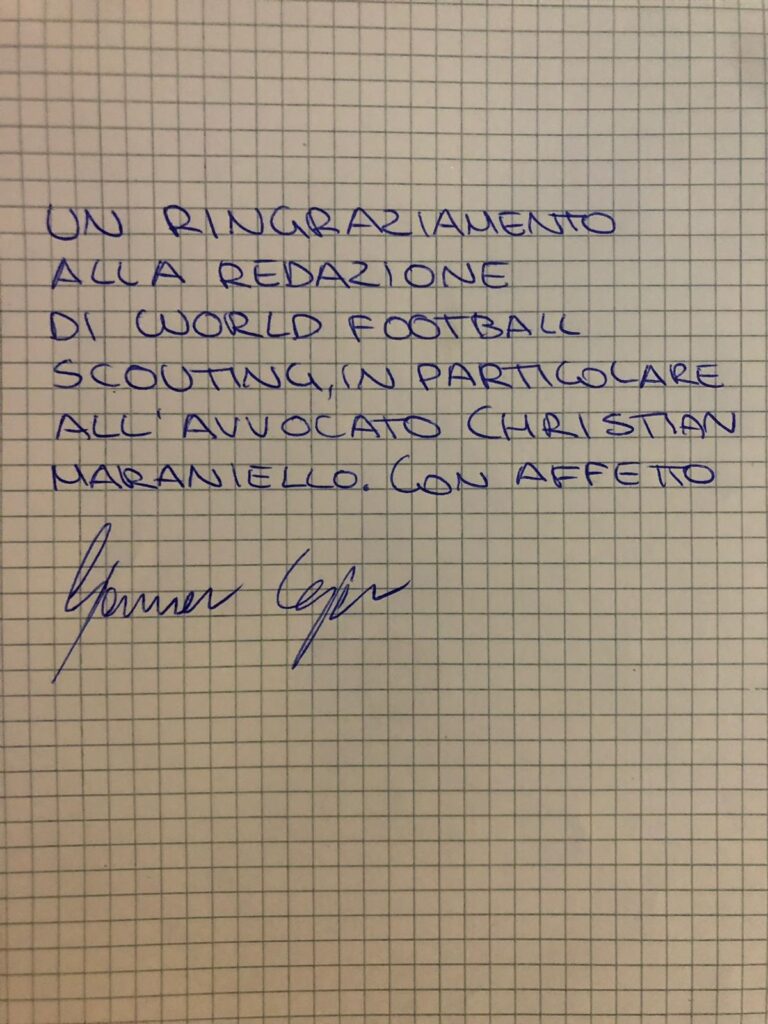 UN RINGRAZIAMENTO
ALLA REDAZIONE
DI WORLD FOOTBALL
SCOUTING, IN PARTICOLARE
ALL'AVVOCATO CHRISTIAN
MARANIELLO. CON AFFETTO